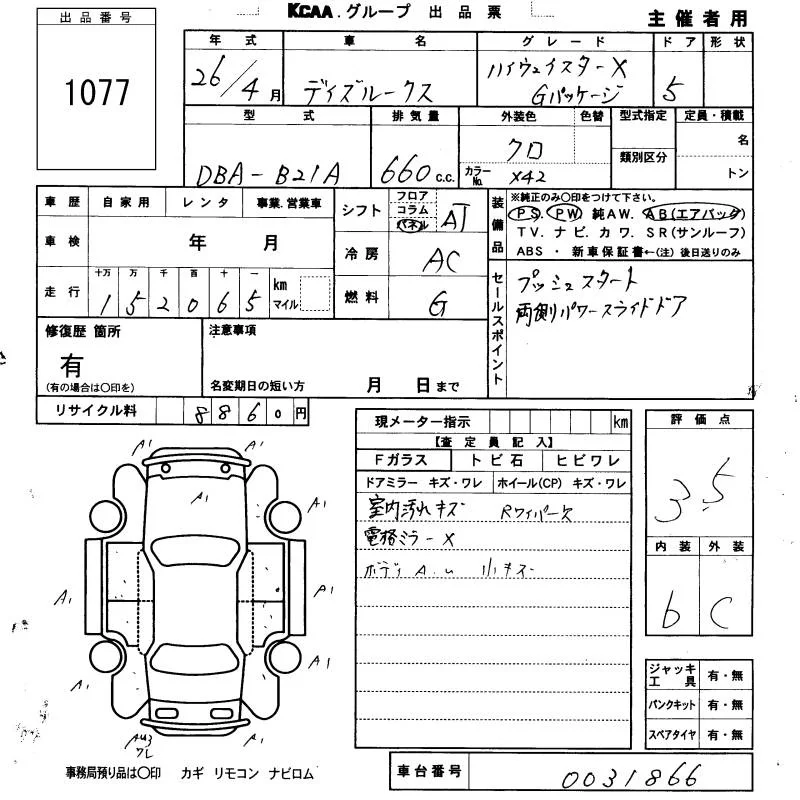 KCAA.グループ 出品票
主催者用
出品番号
1077
年式 車名 グレード ドア 形状
26/4月 デイズルークス ハイウェイスターX
Gパッケージ 5
型式 排気量 外装色 色替 型式指定 定員・積載
DBA-B21A 660c.c. クロ 名
カラーNo. X42 類別区分 トン
車歴 自家用 レンタ 事業.営業車
車検 年 月
走行 十万 万 千 百 十 一
152065 km マイル
シフト フロア コラム パネル AT
冷房 AC
燃料 G
装備品
※純正のみ○印をつけて下さい。
PS. PW 純AW. AB(エアバック)
TV. ナビ. カワ. SR(サンルーフ)
ABS ・ 新車保証書←(注)後日送りのみ
セールスポイント
プッシュスタート
両側パワースライドドア
修復歴 箇所
有
(有の場合は○印を)
注意事項
名変期日の短い方 月 日まで
リサイクル料 8860円
現メーター指示 km
【査定員記入】
Fガラス トビ石 ヒビワレ
ドアミラー キズ・ワレ ホイール(CP) キズ・ワレ
室内汚れキズ Rワイパー欠
電格ミラーX
ボディA.U 小キズ
評価点
3.5
内装 外装
b C
ジャッキ工具 有・無
パンクキット 有・無
スペアタイヤ 有・無
A1 A1
A1
A1
A1 A1
A1 A1
AU3
ワレ
A1
事務局預り品は○印 カギ リモコン ナビロム
車台番号 0031866